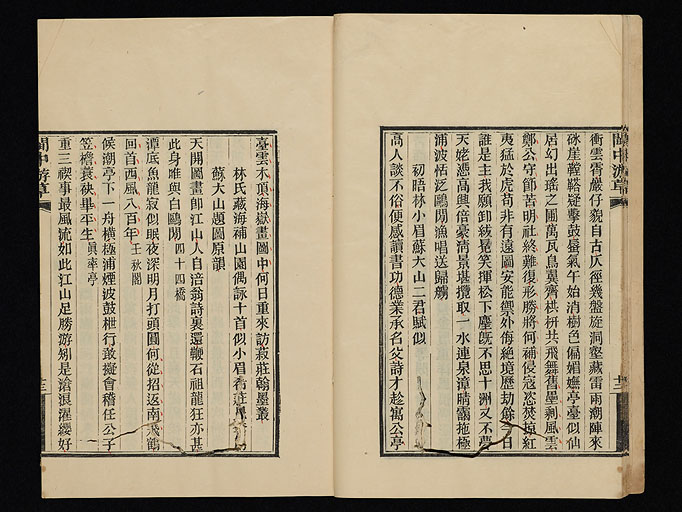 衝雲霄嚴仔貌自古仄徑幾盤旋洞壑藏雷雨潮陣來
硃崖鞺鞳疑擊鼓蜃氣午始消樹色偏媚嫵亭臺似仙
居幻出瑤之圃萬瓦鳥翼齊栱枅共飛舞舊壘剩風雲
鄭公守節苦明社終難復形勝將何補侵寇恣焚掠紅
夷猛於虎苟非有遠圖安能禦外侮絕境歷劫餘今日
誰是主我願卸紱冕笑揮松下塵旣不思十洲又不夢
天姥憑高興倍豪淸景堪攬取一水連泉漳晴靄拖極
浦波恬泛鷗閒漁唱送歸艣
初晤林小眉蘇大山二君賦似
高人談不俗便感讀書功德業承名父詩才趁寓公亭
閩中游草
臺雲木頂海嶽畫圖中何日重來訪菽莊翰墨叢
林氏菽海補山園偶詠十首似小眉
蘇大山題圖原韻
天開圖畫卽江山人自涪翁詩裏還鞭石祖龍狂亦甚
此身唯與白鷗閒 四十四橋
潭底魚龍寂似眠夜深明月打頭圓何從招返南飛鶴
回首西風八百年 壬秋閣
候潮亭下一舟橫極浦煙波鼓枻行敢擬會稽任公子
笠檐蓑袂畢平生 眞率亭
重三禊事最風流如此江山足勝游矧是滄浪濯纓好
閩中游草